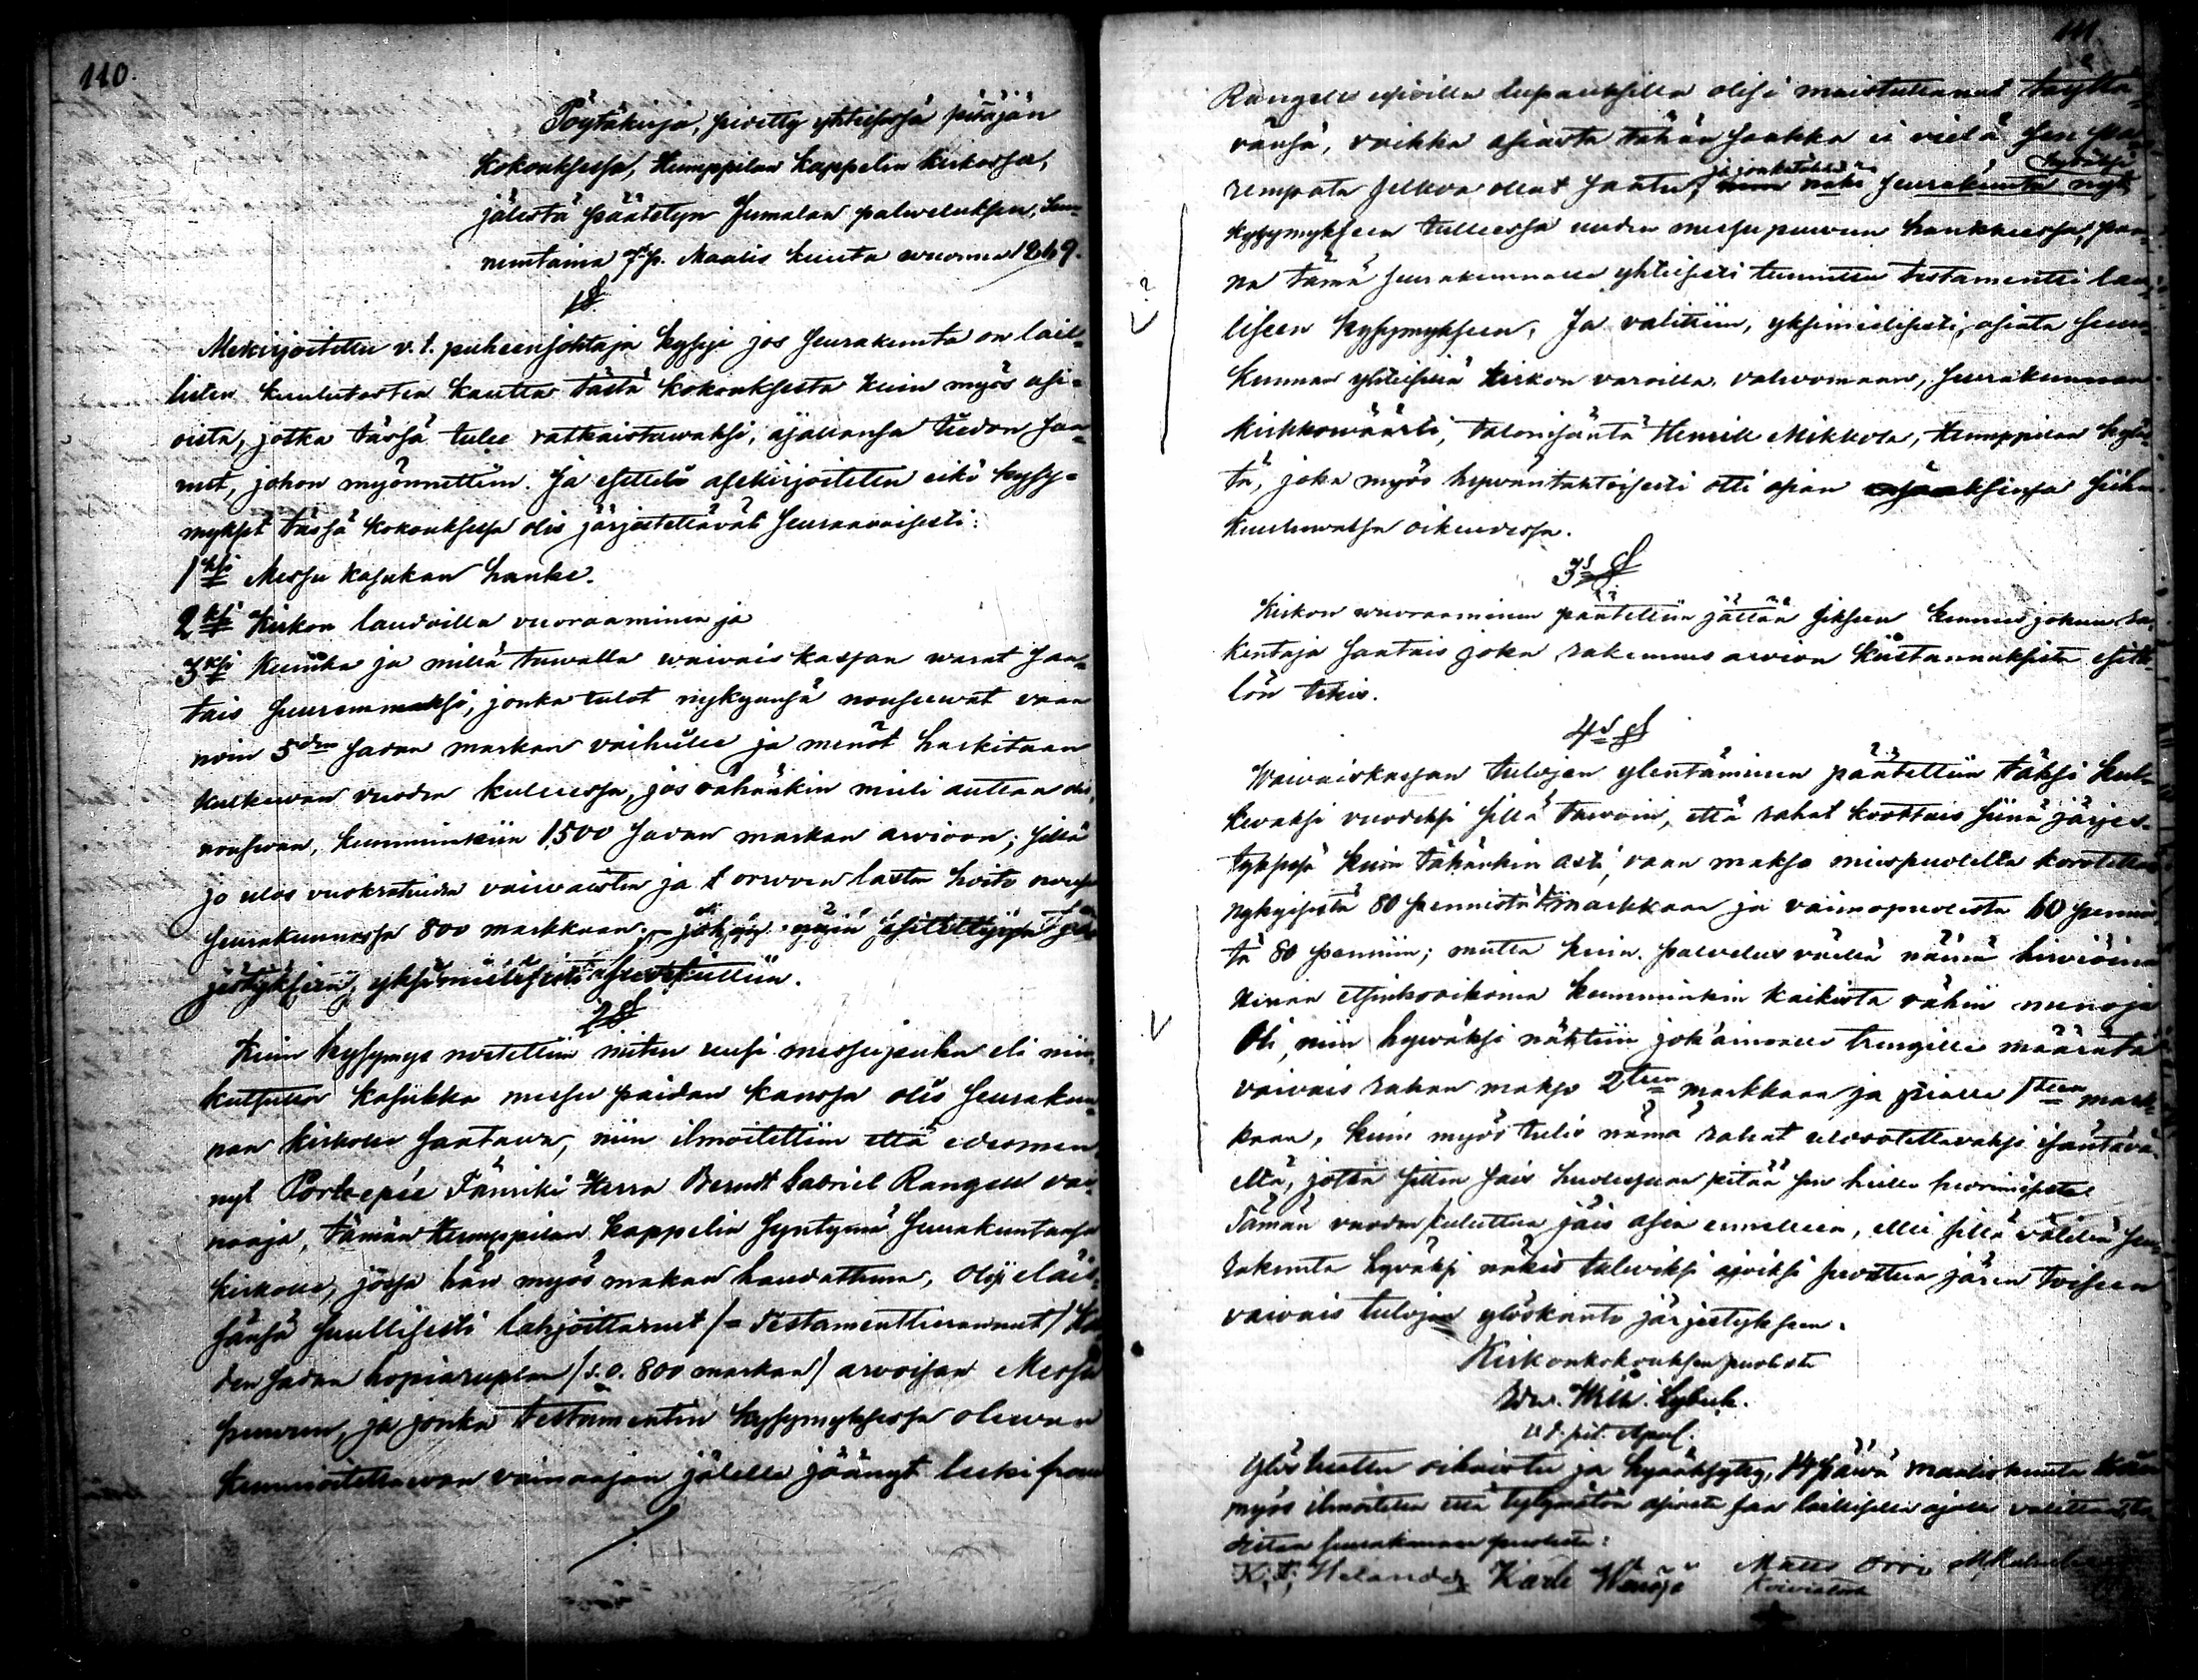 110.
Pöytäkirja, pidetty yhteisessä pitäjän
kokouksessa, Humppilan kappelin kirkossa,
jälestä päätetyn Jumalan palveluksen, Sun-
nuntaina 7 p. Maalis kuuta vuonna 1869.
1 §
Allekirjoitettu v.t. puheenjohtaja kysyi jos seurakunta on lail-
listen kuulutusten kautta tästä kokouksesta kuin myös asi-
oista, jotka tässä tulee ratkaistavaksi, ajallansa tiedon saa-
nut, johon myönnettiin. Ja esitteli allekirjoitettu eikö kysy-
mykset tässä kokouksessa olis järjestettävät seuraavaisesti:
1ksi Messu kasukan hanke.
2ksi Kirkon laudoilla vuoraaminen ja
3ksi Kuinka ja millä tavalla waivais kassan warat saa-
tais suuremmaksi, jonka tulot nykyänsä nousewat vaan
noin 5den sadan markan vaiheille ja menot harkitaan
kulkewan vuoden kuluessa, jos vähänkin mieli auttaa
nousewan, kumminkin 1,500 sadan markan arvioon; sillä
jo ulos vuokrattuiden vaivaisten ja orwoin lasten hoito nousee
seurakunnassa 800 markkaan; johon näin esitettyyn
jestykseen, yksimielisesti suostuttiin.
2 §
Kuin kysymys nostettiin miten uusi messupuku eli niin
kutsuttu kasukka messu paidan kanssa olis seurakun-
nan kirkolle saatava, niin ilmoitettiin että edesmen-
nyt Portepée Fänriki Herra Berndt Gabriel Rangell vai-
naja, tämän Humppilan kappelin syntymä seurakuntansa
kirkolle, jossa hän myös makaa haudattuna, olisi eläis-
sänsä suullisesti lahjoittanut /= Testamentteerannut/
den sadan hopiaruplan /s.o. 800 markan/ arvoisan Messu
puvun, ja jonka testamentin kysymyksessä olevan
kunnioitettavan vainaajan jälelle jäänyt leski frou
111.
Rangell lupauksilla olisi muistuttanut täyttä-
vänsä, vaikka asiasta tähän saakka ei vielä sen pa-
rempata selkoa ollut saatu, ja jonkatähden näki seurakunta nyt hyväksi
kysymykseen tulleessa uuden messu puvun hankkeessa, pan-
na tämä seurakunnalle yhteisesti tunnettu testamentti lail-
liseen kysymykseen. Ja valittiin, yksimielisesti, asiata seura-
kunnan yhteisillä kirkon varoilla valvomaan, seurakunnan
kirkkowäärti, talonisäntä Henrik Mikkola, Humppilan kyläs-
tä, joka myös hywäntahtoisesti otti asian siihen
kuuluwassa oikeudessa.
3s §
Kirkon wuoraaminen päätettiin jättää siksen kunnes jokuu ra-
kentaja saatais joka rakennus arvion kustannuksista esitte-
lön tekis.
4s §
Waivaiskassan tulojen ylentäminen päätettiin täksi kul-
kevaksi vuodeksi sillä tawoin, että rahat koottais siinä järjes-
tyksessä kuin tähänkin asti, vaan makso miespuolelta korotettiin
nykyisestä 80 pennistä markkaan ja vaimopuolesta 60 pennis-
tä 80 penniin; mutta kuin palvelus väellä
kumminkin kaikista vähin menoja
Oli, niin hywäksi nähtiin jok'ainoalle trengille määrätä
vaivais rahan makso 2teen markkaan ja piialle 1teen mark-
kaan, kuin myös tulis nämä rahat ulosotettavaksi isäntävä-
eltä, jotka sitten sais huolensaan pitää sen heille suorimisesta.
Tämän vuoden kuluttua jäis asia ennelleen, ellei sillä välillä seu-
rakunta hyväksi näkis tuleviksi ajoiksi suostua jären toiseen
vaivais tulojen ylöskanto järjestykseen.
Kirkonkokouksen puolesta
Wilh. Sybeck.
v.t. pit. Apul.
Ylös luettu oikaistu ja hyväksytty, 14 päivä maaliskuuta
myös ilmoitettu että tytymätön asiasta saa laillisella ajalla valittaa,
distaa seurakunnan puolesta:
K. F. Helander Karle Wensjö Matts Orri
Koivisto